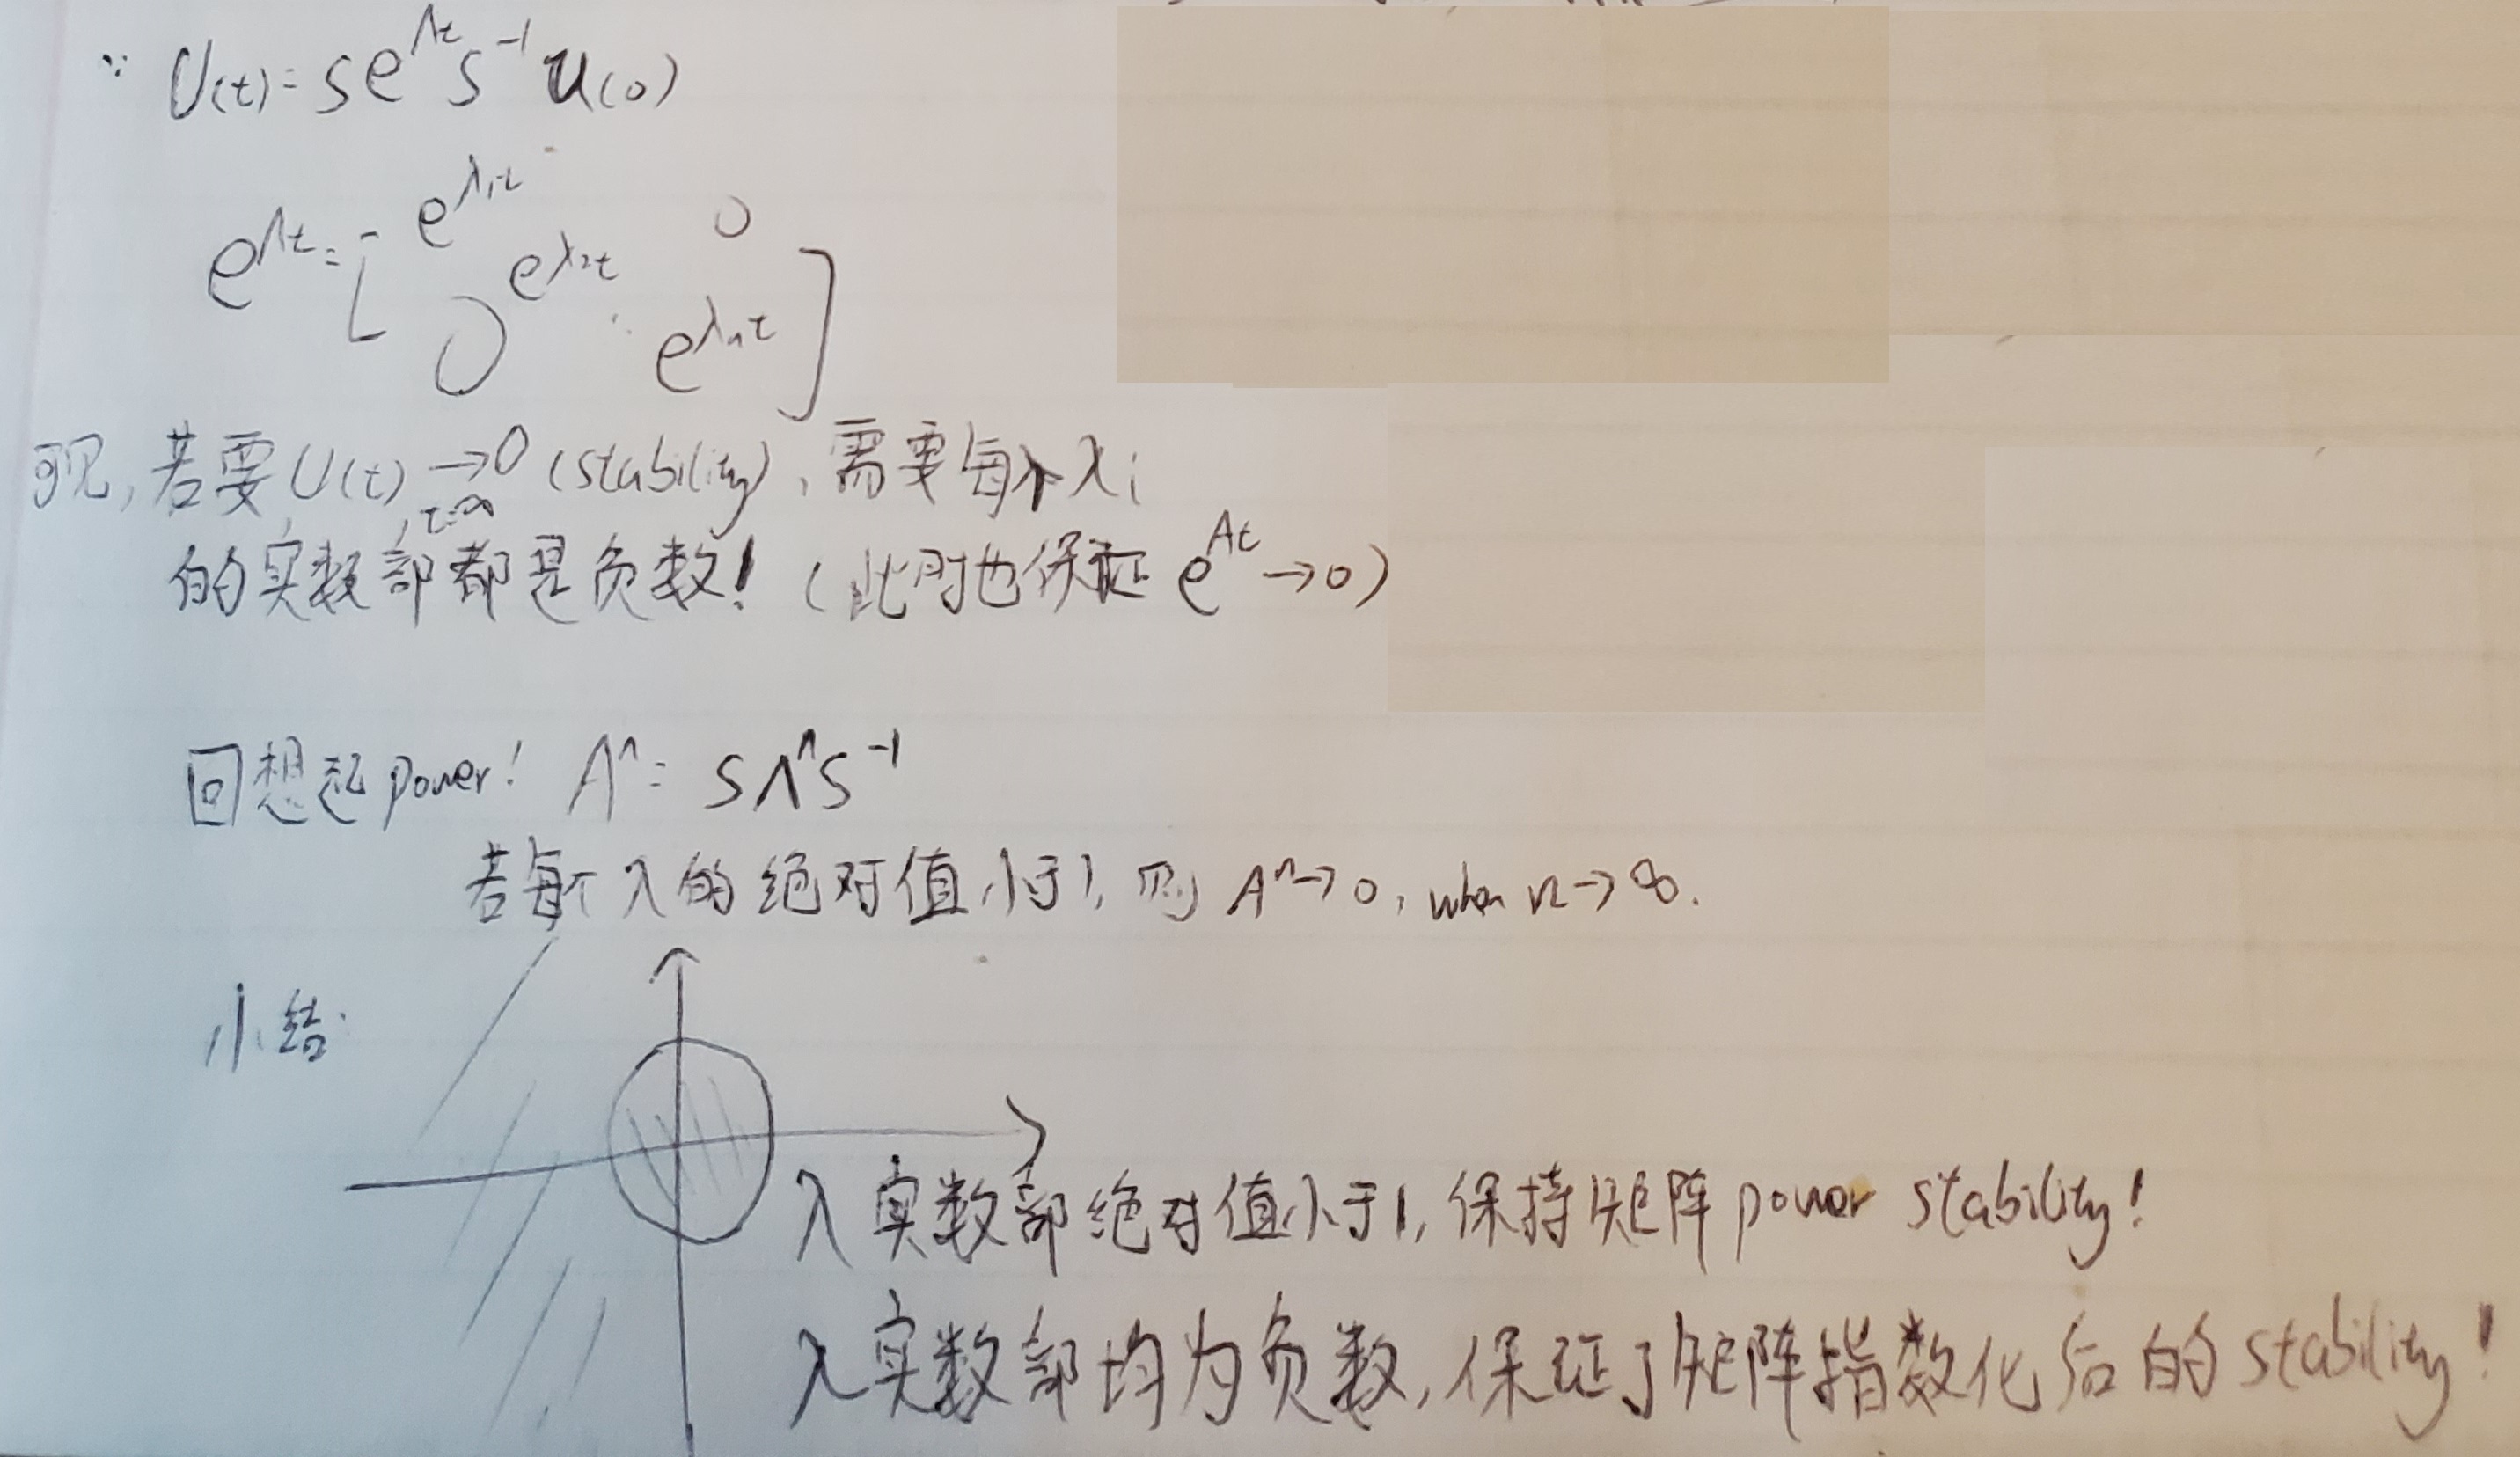 ∵ U(t) = S e^{Λt} S^{-1} u(0)
e^{Λt} = [ e^{λ₁t} 0
e^{λ₂t}
0 ⋱ e^{λₙt} ]
可见, 若要 U(t) → 0 (stability), 需要每个 λi
t=∞
的实数部都是负数! (此时也保证 e^{At} → 0)
回想起 power! A^n = S Λ^n S^{-1}
若每个 λ 的绝对值小于1, 则 A^n → 0, when n → ∞.
小结:
λ 实数部绝对值小于1, 保持矩阵 power stability!
λ 实数部均为负数, 保证了矩阵指数化后的 stability!